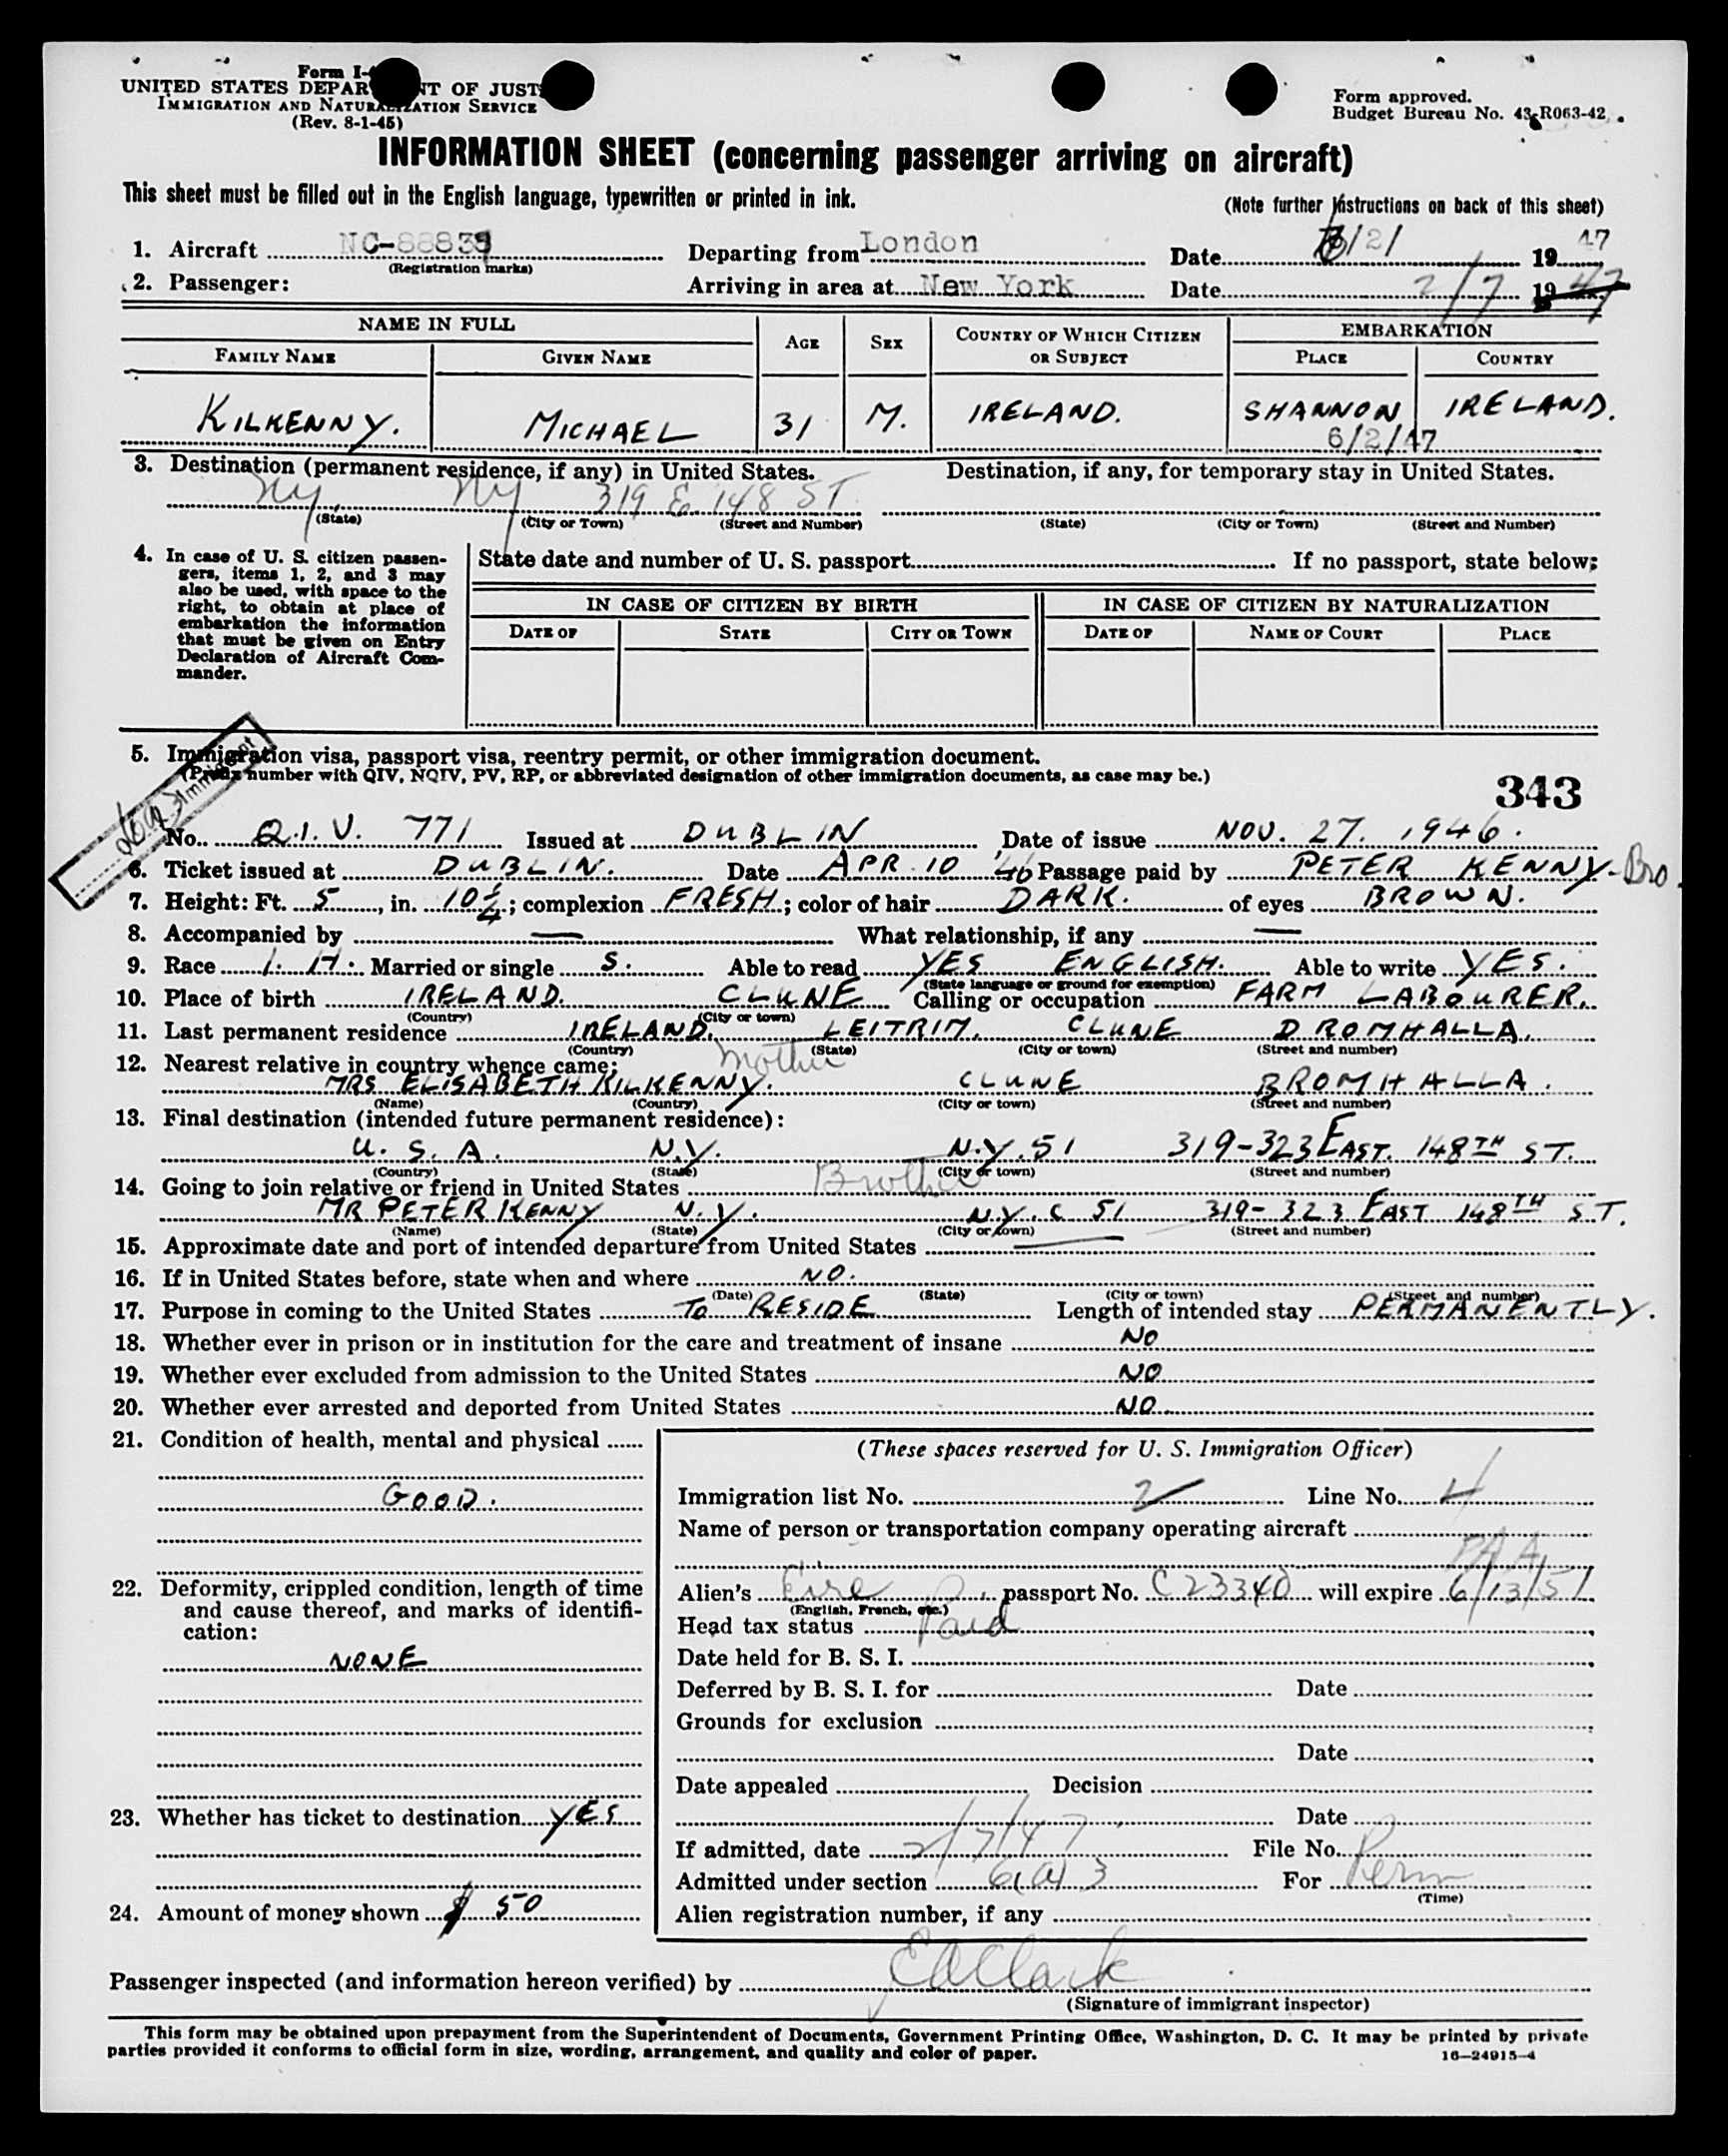 Form I-
UNITED STATES DEPAR NT OF JUST
IMMIGRATION AND NATURALIZATION SERVICE
(Rev. 8-1-45)
Form approved.
Budget Bureau No. 43-R063-42.
INFORMATION SHEET (concerning passenger arriving on aircraft)
This sheet must be filled out in the English language, typewritten or printed in ink.
(Note further instructions on back of this sheet)
1. Aircraft NC-88839 Departing from London Date 6/2/ 1947
(Registration marks)
2. Passenger: Arriving in area at New York Date 2/7 1947
NAME IN FULL AGE SEX COUNTRY OF WHICH CITIZEN OR SUBJECT EMBARKATION
FAMILY NAME GIVEN NAME PLACE COUNTRY
KILKENNY. MICHAEL 31 M. IRELAND. SHANNON IRELAND.
6/2/47
3. Destination (permanent residence, if any) in United States. Destination, if any, for temporary stay in United States.
NY NY 319 E 148 ST
(State) (City or Town) (Street and Number) (State) (City or Town) (Street and Number)
4. In case of U. S. citizen passengers, items 1, 2, and 3 may also be used, with space to the right, to obtain at place of embarkation the information that must be given on Entry Declaration of Aircraft Commander.
State date and number of U. S. passport If no passport, state below:
IN CASE OF CITIZEN BY BIRTH IN CASE OF CITIZEN BY NATURALIZATION
DATE OF STATE CITY OR TOWN DATE OF NAME OF COURT PLACE
5. Immigration visa, passport visa, reentry permit, or other immigration document.
(Prefix number with QIV, NQIV, PV, RP, or abbreviated designation of other immigration documents, as case may be.)
Immigrant
343
No. Q.I.V. 771 Issued at DUBLIN Date of issue NOV. 27. 1946.
6. Ticket issued at DUBLIN. Date APR. 10 46 Passage paid by PETER KENNY - Bro.
7. Height: Ft. 5, in. 10½; complexion FRESH; color of hair DARK. of eyes BROWN.
8. Accompanied by — What relationship, if any —
9. Race I. H. Married or single S. Able to read YES ENGLISH. Able to write YES.
(State language or ground for exemption)
10. Place of birth IRELAND. CLUNE Calling or occupation FARM LABOURER.
(Country) (City or town)
11. Last permanent residence IRELAND. LEITRIM. CLUNE DROMHALLA.
(Country) (State) (City or town) (Street and number)
12. Nearest relative in country whence came: Mother
MRS ELISABETH KILKENNY. CLUNE BROMHALLA.
(Name) (Country) (City or town) (Street and number)
13. Final destination (intended future permanent residence):
U. S. A. N.Y. N.Y. 51 319-323 EAST. 148TH ST.
(Country) (State) (City or town) (Street and number)
14. Going to join relative or friend in United States Brother
MR PETER KENNY N.Y. N.Y. C 51 319-323 EAST 148TH ST.
(Name) (State) (City or town) (Street and number)
15. Approximate date and port of intended departure from United States —
16. If in United States before, state when and where NO.
(Date) (State) (City or town) (Street and number)
17. Purpose in coming to the United States TO RESIDE Length of intended stay PERMANENTLY.
18. Whether ever in prison or in institution for the care and treatment of insane NO
19. Whether ever excluded from admission to the United States NO
20. Whether ever arrested and deported from United States NO
21. Condition of health, mental and physical
GOOD.
22. Deformity, crippled condition, length of time and cause thereof, and marks of identification:
NONE
23. Whether has ticket to destination YES
24. Amount of money shown $ 50
(These spaces reserved for U. S. Immigration Officer)
Immigration list No. 2 Line No. 4
Name of person or transportation company operating aircraft
PAA
Alien's Eire passport No. C23340 will expire 6/13/51
(English, French, etc.)
Head tax status Paid
Date held for B. S. I.
Deferred by B. S. I. for Date
Grounds for exclusion
Date
Date appealed Decision
Date
If admitted, date 2/7/47 File No.
Admitted under section 6(a)3 For Perm
(Time)
Alien registration number, if any
Passenger inspected (and information hereon verified) by EAClark
(Signature of immigrant inspector)
This form may be obtained upon prepayment from the Superintendent of Documents, Government Printing Office, Washington, D. C. It may be printed by private
parties provided it conforms to official form in size, wording, arrangement, and quality and color of paper.
16—24915-4